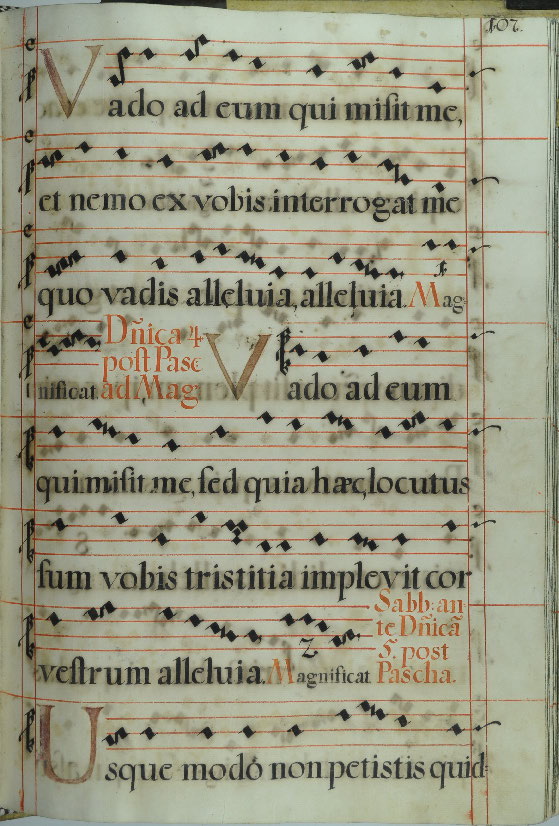 107.
Vado ad eum qui misit me,
et nemo ex vobis interrogat me
quo vadis alleluia, alleluia. Mag
nificat. Dñica 4
post Pasc
ad Mag
Vado ad eum
qui misit me, sed quia hæc locutus
sum vobis tristitia implevit cor
vestrum alleluia. Magnificat
Sabb: an
te Dñicã
5. post
Pascha.
Usque modó non petistis quid